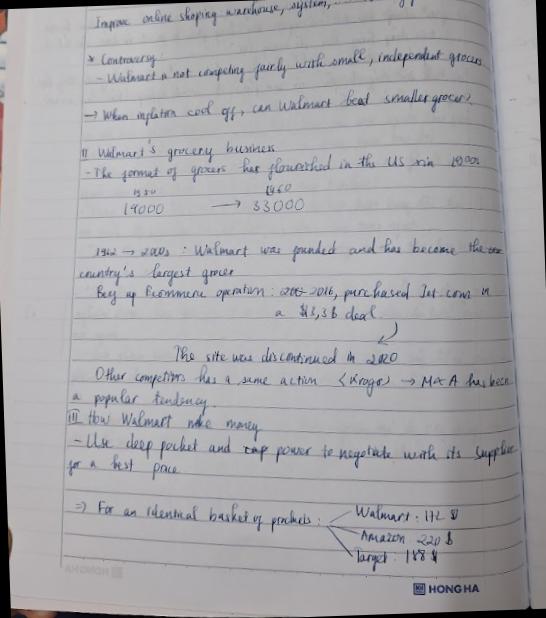 Improve online shoping warehouse, system,
* Controversy
- Walmart is not competing fairly with small, independent grocers
→ When inflation cool off, can Walmart beat smaller grocers?
II Walmart's grocery business
- The format of grocers has flourished in the US in 1900s
1950 1960
14000 → 33000
1962 → 2000s : Walmart was founded and has become the
country's largest grocer
Buy up Ecommerce operation : 2016, purchased Jet.com in
a $3,3B deal
The site was discontinued in 2020
Other competitors has a same action (Kroger) → M&A has been
a popular tendency
III How Walmart make money
- Use deep pocket and power to negotiate with its supplier
for a best price
⇒ For an identical basket of products : Walmart : 172 $
Amazon 220 $
Target : 188 $
HONG HA
HONG HA